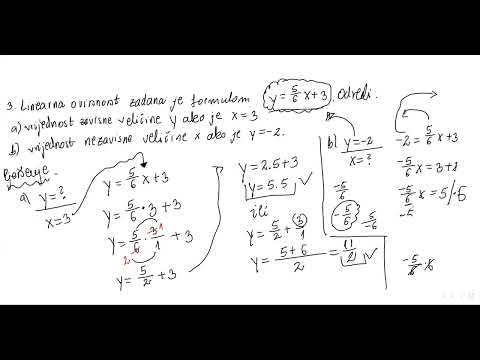 3. Linearna ovisnost zadana je formulom y = 5/6 x + 3. Odredi:
a) vrijednost zavisne veličine y ako je x = 3
b) vrijednost nezavisne veličine x ako je y = -2.
Rješenje
a) y = ?
x = 3
y = 5/6 x + 3
y = 5/6 · 3 + 3
y = 5/6 · 3/1 + 3
2 1
y = 5/2 + 3
y = 2.5 + 3
y = 5.5 ✓
ili
y = 5/2 + 3/1
y = (5+6)/2 = 11/2 ✓
b) y = -2
x = ?
-5/6
-5/6 5/-6
-2 = 5/6 x + 3
-5/6 x = 3 + 2
-5/6 x = 5 /·
-5
-5/6 · 6